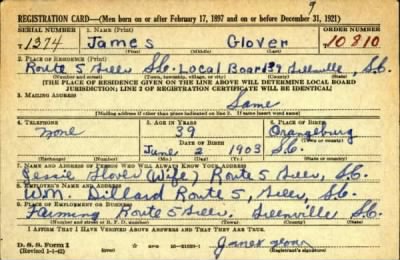 9
REGISTRATION CARD—(Men born on or after February 17, 1897 and on or before December 31, 1921)
SERIAL NUMBER 1. NAME (Print) ORDER NUMBER
T 1374 James Glover 10810
(First) (Middle) (Last)
2. PLACE OF RESIDENCE (Print)
Route 5 Greer S.C. Local Board 37 Greenville, S.C.
(Number and street) (Town, township, village, or city) (County) (State)
[THE PLACE OF RESIDENCE GIVEN ON THE LINE ABOVE WILL DETERMINE LOCAL BOARD
JURISDICTION; LINE 2 OF REGISTRATION CERTIFICATE WILL BE IDENTICAL]
3. MAILING ADDRESS
Same
(Mailing address if other than place indicated on line 2. If same insert word same)
4. TELEPHONE 5. AGE IN YEARS 6. PLACE OF BIRTH
None 39 Orangeburg
DATE OF BIRTH (Town or county)
June 2 1903 S.C.
(Exchange) (Number) (Mo.) (Day) (Yr.) (State or country)
7. NAME AND ADDRESS OF PERSON WHO WILL ALWAYS KNOW YOUR ADDRESS
Jessie Glover (Wife) Route 5 Greer, S.C.
8. EMPLOYER'S NAME AND ADDRESS
Wm. Dillard Route 5, Greer, S.C.
9. PLACE OF EMPLOYMENT OR BUSINESS
Farming Route 5 Greer, Greenville S.C.
(Number and street or R. F. D. number) (Town) (County) (State)
I AFFIRM THAT I HAVE VERIFIED ABOVE ANSWERS AND THAT THEY ARE TRUE.
D. S. S. Form 1
(Revised 1-1-42) (over)
(Registrant's signature)